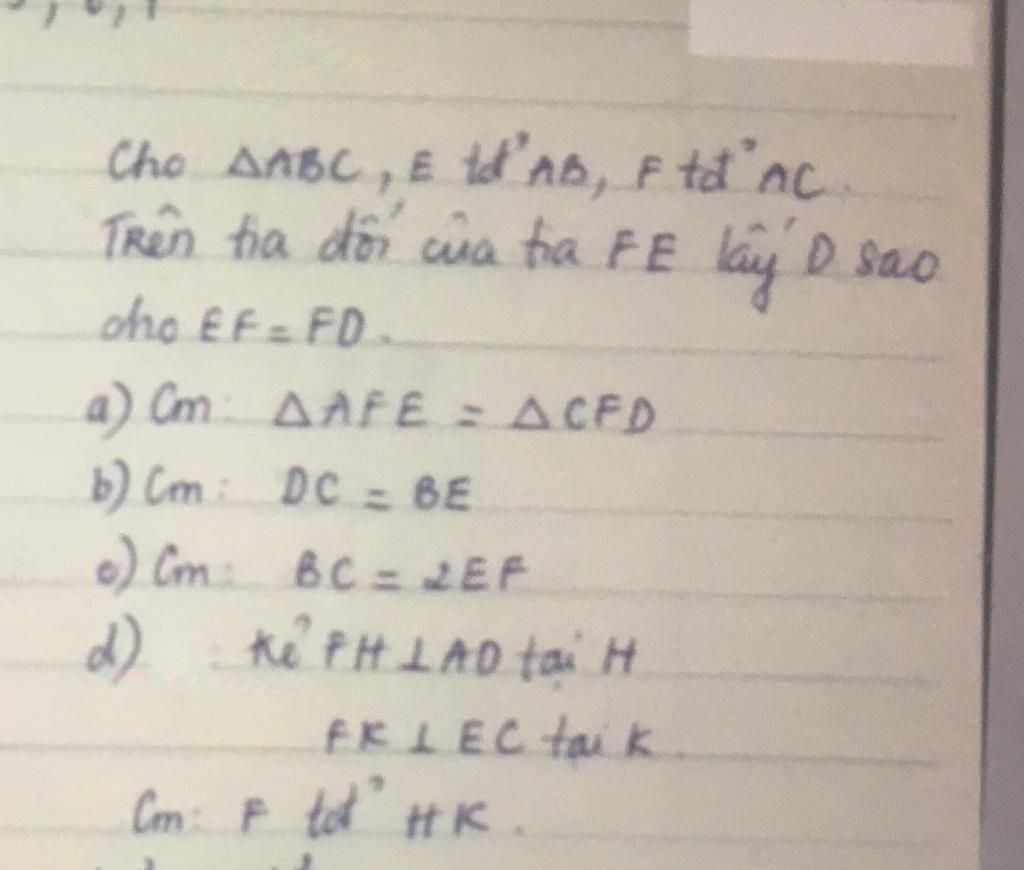 Cho ΔABC, E tđ' AB, F tđ' AC.
Trên tia đối của tia FE lấy D sao
cho EF = FD.
a) Cm: ΔAFE = ΔCFD
b) Cm: DC = BE
c) Cm: BC = 2EF
d) Kẻ FH ⊥ AD tại H
FK ⊥ EC tại K
Cm: F tđ' HK.